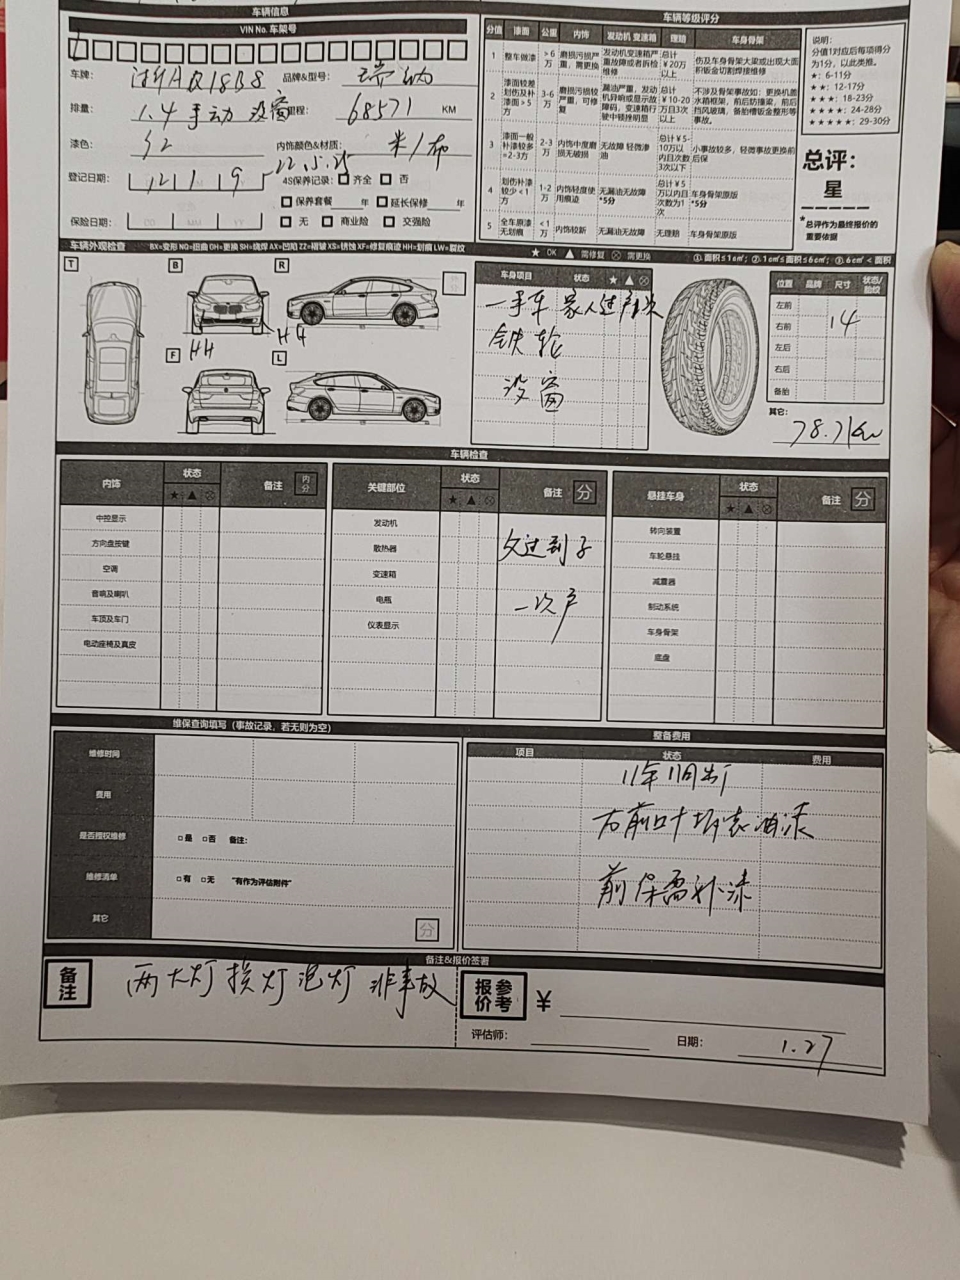 车辆信息
VIN No. 车架号
车牌: 浙AQ18B8 品牌&型号: 瑞纳
排量: 1.4 手动 没窗 里程: 68571 KM
漆色: 红 内饰颜色&材质: 米/布
22.5.25
登记日期: 12 1 19 4S保养记录: 齐全 否
保养套餐 年 延长保修 年
保险日期: 无 商业险 交强险
车辆等级评分
分值 漆面 公里 内饰 发动机 变速箱 理赔 车身骨架
1 整车做漆 >6万 磨损污损严重,需更换 发动机变速箱严重故障或者拆检维修 总计¥20万以上 伤及车身骨架大梁或出现大面积钣金切割焊接维修
2 漆面较差 划伤及补漆面>5方 3-6万 磨损污损较严重,可修复 漏油严重,发动机异响或显示故障码,变速箱行驶中顿挫明显 总计¥10-20万白3次以上 不涉及骨架事故如:更换机盖水箱框架,前后防撞梁,前后挡风玻璃,备胎槽钣金整形等事故。
3 漆面一般 补漆较多=2-3方 2-3万 内饰中度磨损无破损 无故障 轻微渗油 总计¥5-10万以内目次数3次以下 小事故较多,轻微事故更换前后保
4 划伤补漆较少<1方 1-2万 内饰轻度使用痕迹 无漏油无故障 *5分 总计¥5万以内且次数为1次 车身骨架原版 *5分
5 全车原漆无划痕 <1万 内饰较新 无漏油无故障 无理赔 车身骨架原版
说明:
分值1对应后每项得分为1分,以此类推。
★: 6-11分
★★: 12-17分
★★★: 18-23分
★★★★: 24-28分
★★★★★: 29-30分
总评:
星
*总评作为最终报价的重要依据
车辆外观检查 BX=变形 NQ=扭曲 GH=更换 SH=烧焊 AX=凹陷 ZZ=褶皱 XS=锈蚀 XF=修复痕迹 HH=划痕 LW=裂纹
★ OK ▲ 需修复 ⊗ 需更换 ①.面积≤1c㎡; ②.1c㎡≤面积≤6c㎡; ③.6c㎡<面积
T B R
HH HH
F L
车身项目 状态
一手车 家人过户1次
铁轮
没窗
位置 品牌 尺寸 状态/胎纹
左前
右前 14
左后
右后
备胎
其它: 78.7kw
车辆检查
内饰 状态 备注 内分
中控显示
方向盘按键
空调
音响及喇叭
车顶及车门
电动座椅及真皮
关键部位 状态 备注 分
发动机
散热器 父过到子
变速箱
电瓶 一次户
仪表显示
悬挂车身 状态 备注 分
转向装置
车轮悬挂
减震器
制动系统
车身骨架
底盘
维保查询填写(事故记录,若无则为空)
维修时间
费用
是否授权维修 是 否 备注:
维修清单 有 无 "有作为评估附件"
其它 分
整备费用
项目 状态 费用
11年11月出厂
右前叶 油漆
前保需补漆
备注&报价签署
备注 两大灯换灯泡灯 非事故
报价参考 ¥
评估师: 日期: 1.27